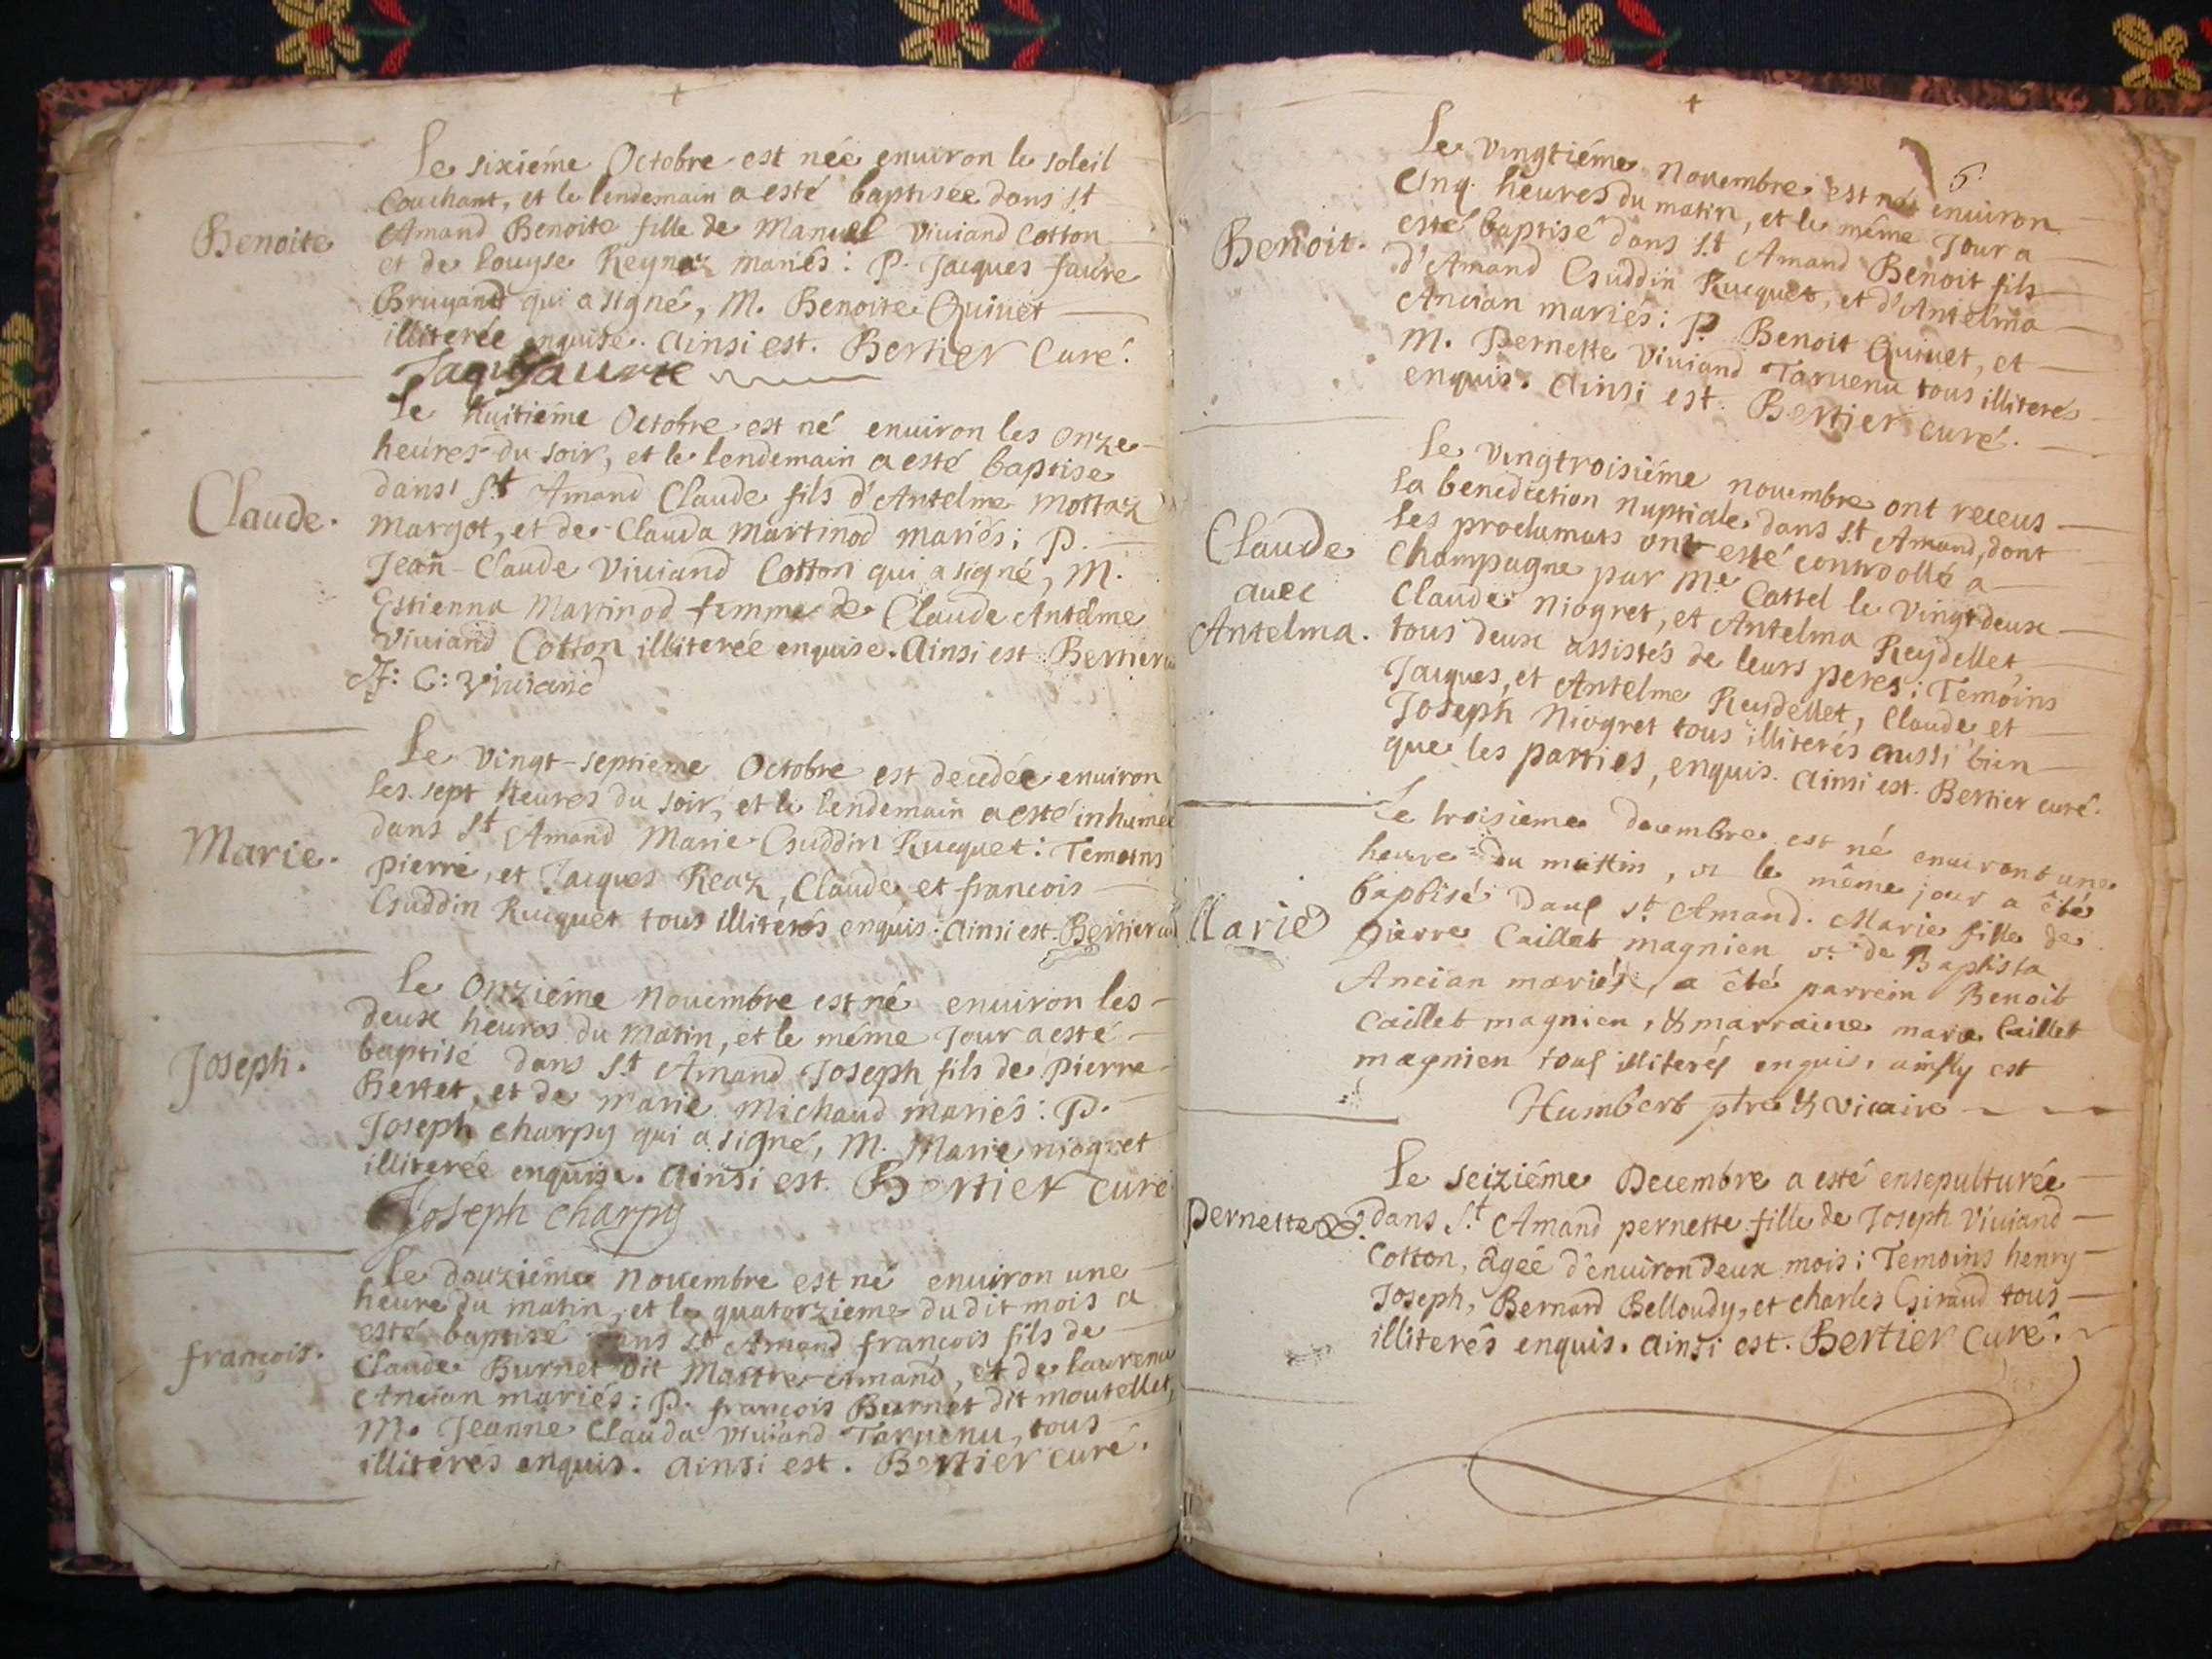 Benoite
Le sixiéme Octobre est née enuiron le soleil
Couchant, et le lendemain a esté baptisée dans St
Amand Benoite fille de Manuel Viuiand Cotton
et de louyse Reynaz mariés: P. Jacques faure
Bruyand qui a signé, M. Benoite Quinet
illiterée enquise. Ainsi est. Bertier Curé.
Jaques faure
Claude.
Le huitiéme Octobre est né enuiron les onze
heures du soir, et le lendemain a esté baptise
dans St Amand Claude fils d'Antelme Mottaz
Margot, et de Clauda Martinod mariés; P.
Jean-Claude Viuiand Cotton qui a signé, M.
Estienna Martinod femme de Claude Antelme
Viuiand Cotton illiterée enquise. Ainsi est Bertier
J: C: Viuiand
Marie.
Le Vingt-septieme Octobre est decedée enuiron
les sept heures du soir, et le lendemain a esté inhumée
dans St Amand Marie Cuddin Rucquet: Temoins
pierre, et Jacques Reaz, Claude et francois
Cuddin Rucquet tous illiterés enquis: Ainsi est. Bertier
Joseph.
Le Onziéme Nouembre est né enuiron les
deux heures du Matin, et le méme Jour a esté
baptisé dans St Amand Joseph fils de Pierre
Bertet, et de marie Michaud mariés: P.
Joseph Charpy qui a signé, M. Marie niogret
illiterée enquise. Ainsi est. Bertier Curé
Joseph charpy
françois.
Le douziéme Nouembre est né enuiron une
heure du matin, et le quatorzieme dudit mois a
esté baptisé dans St Amand françois fils de
Claude Burnet dit Maitre-Armand, et de laurence
Ancian mariés: P. françois Burnet dit moutellet,
M. Jeanne Clauda viuiand Taruenu, tous
illiterés enquis. Ainsi est. Bertier curé.
6
Benoit.
Le vingtiéme Nouembre est né enuiron
Cinq heures du matin, et le même Jour a
esté baptisé dans St Amand Benoit fils
d'Amand Cuddin Rucquet, et d'Antelma
Ancian mariés: P. Benoit Quinet, et
M. Pernette Viuiand Taruenu tous illiterés
enquis. Ainsi est. Bertier curé.
Claude
auec
Antelma.
Le Vingtroisiéme nouembre ont receus
la benediction nuptiale dans St Amand, dont
les proclamats ont esté controollé a
Champagne par Me Cattel le Vingtdeux
Claude Niogret, et Antelma Reydellet,
tous deux assistés de leurs peres; Temoins
Jacques, et Antelme Reydellet, Claude et
Joseph Niogret tous illiterés aussi bien
que les parties, enquis. Ainsi est. Bertier curé.
Marie
Le troisieme decembre est né enuiront une
heure du mattin, et le même jour a êté
baptisé dans St Amand. Marie fille de
Pierre Caillet magnien et de Baptista
Ancian mariés, a êté parrein Benoit
Caillet magnien, & marraine marie Caillet
magnien tous illiterés enquis, ainsy est
Humbert ptre & vicaire
Pernette
Le seiziéme Decembre a esté ensepulturée
dans St Amand pernette fille de Joseph Viuiand
Cotton, âgée d'enuiron deux mois; Temoins henry
Joseph, Bernard Belloudy, et charles Giraud tous
illiterés enquis. Ainsi est. Bertier Curé.